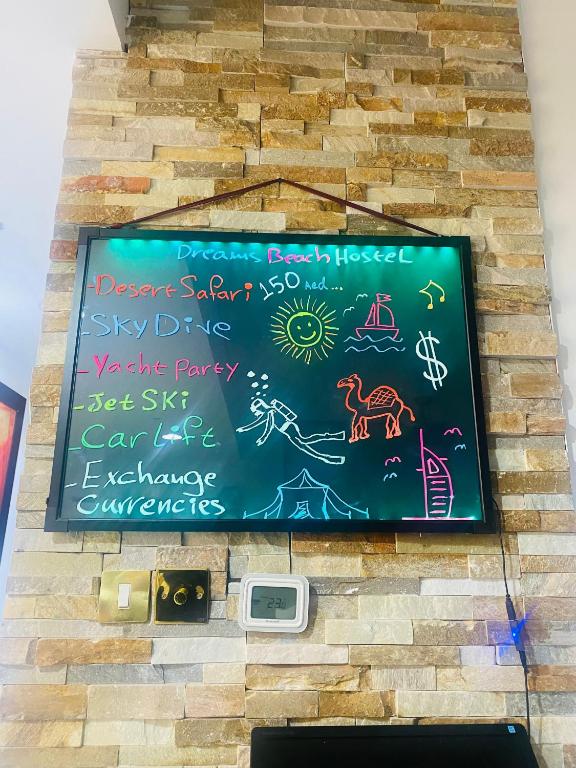 Dreams Beach Hostel
-Desert Safari 150 aed...
-Sky Dive
-Yacht Party
-Jet Ski
-Car Lift
-Exchange
Currencies
$
23.0